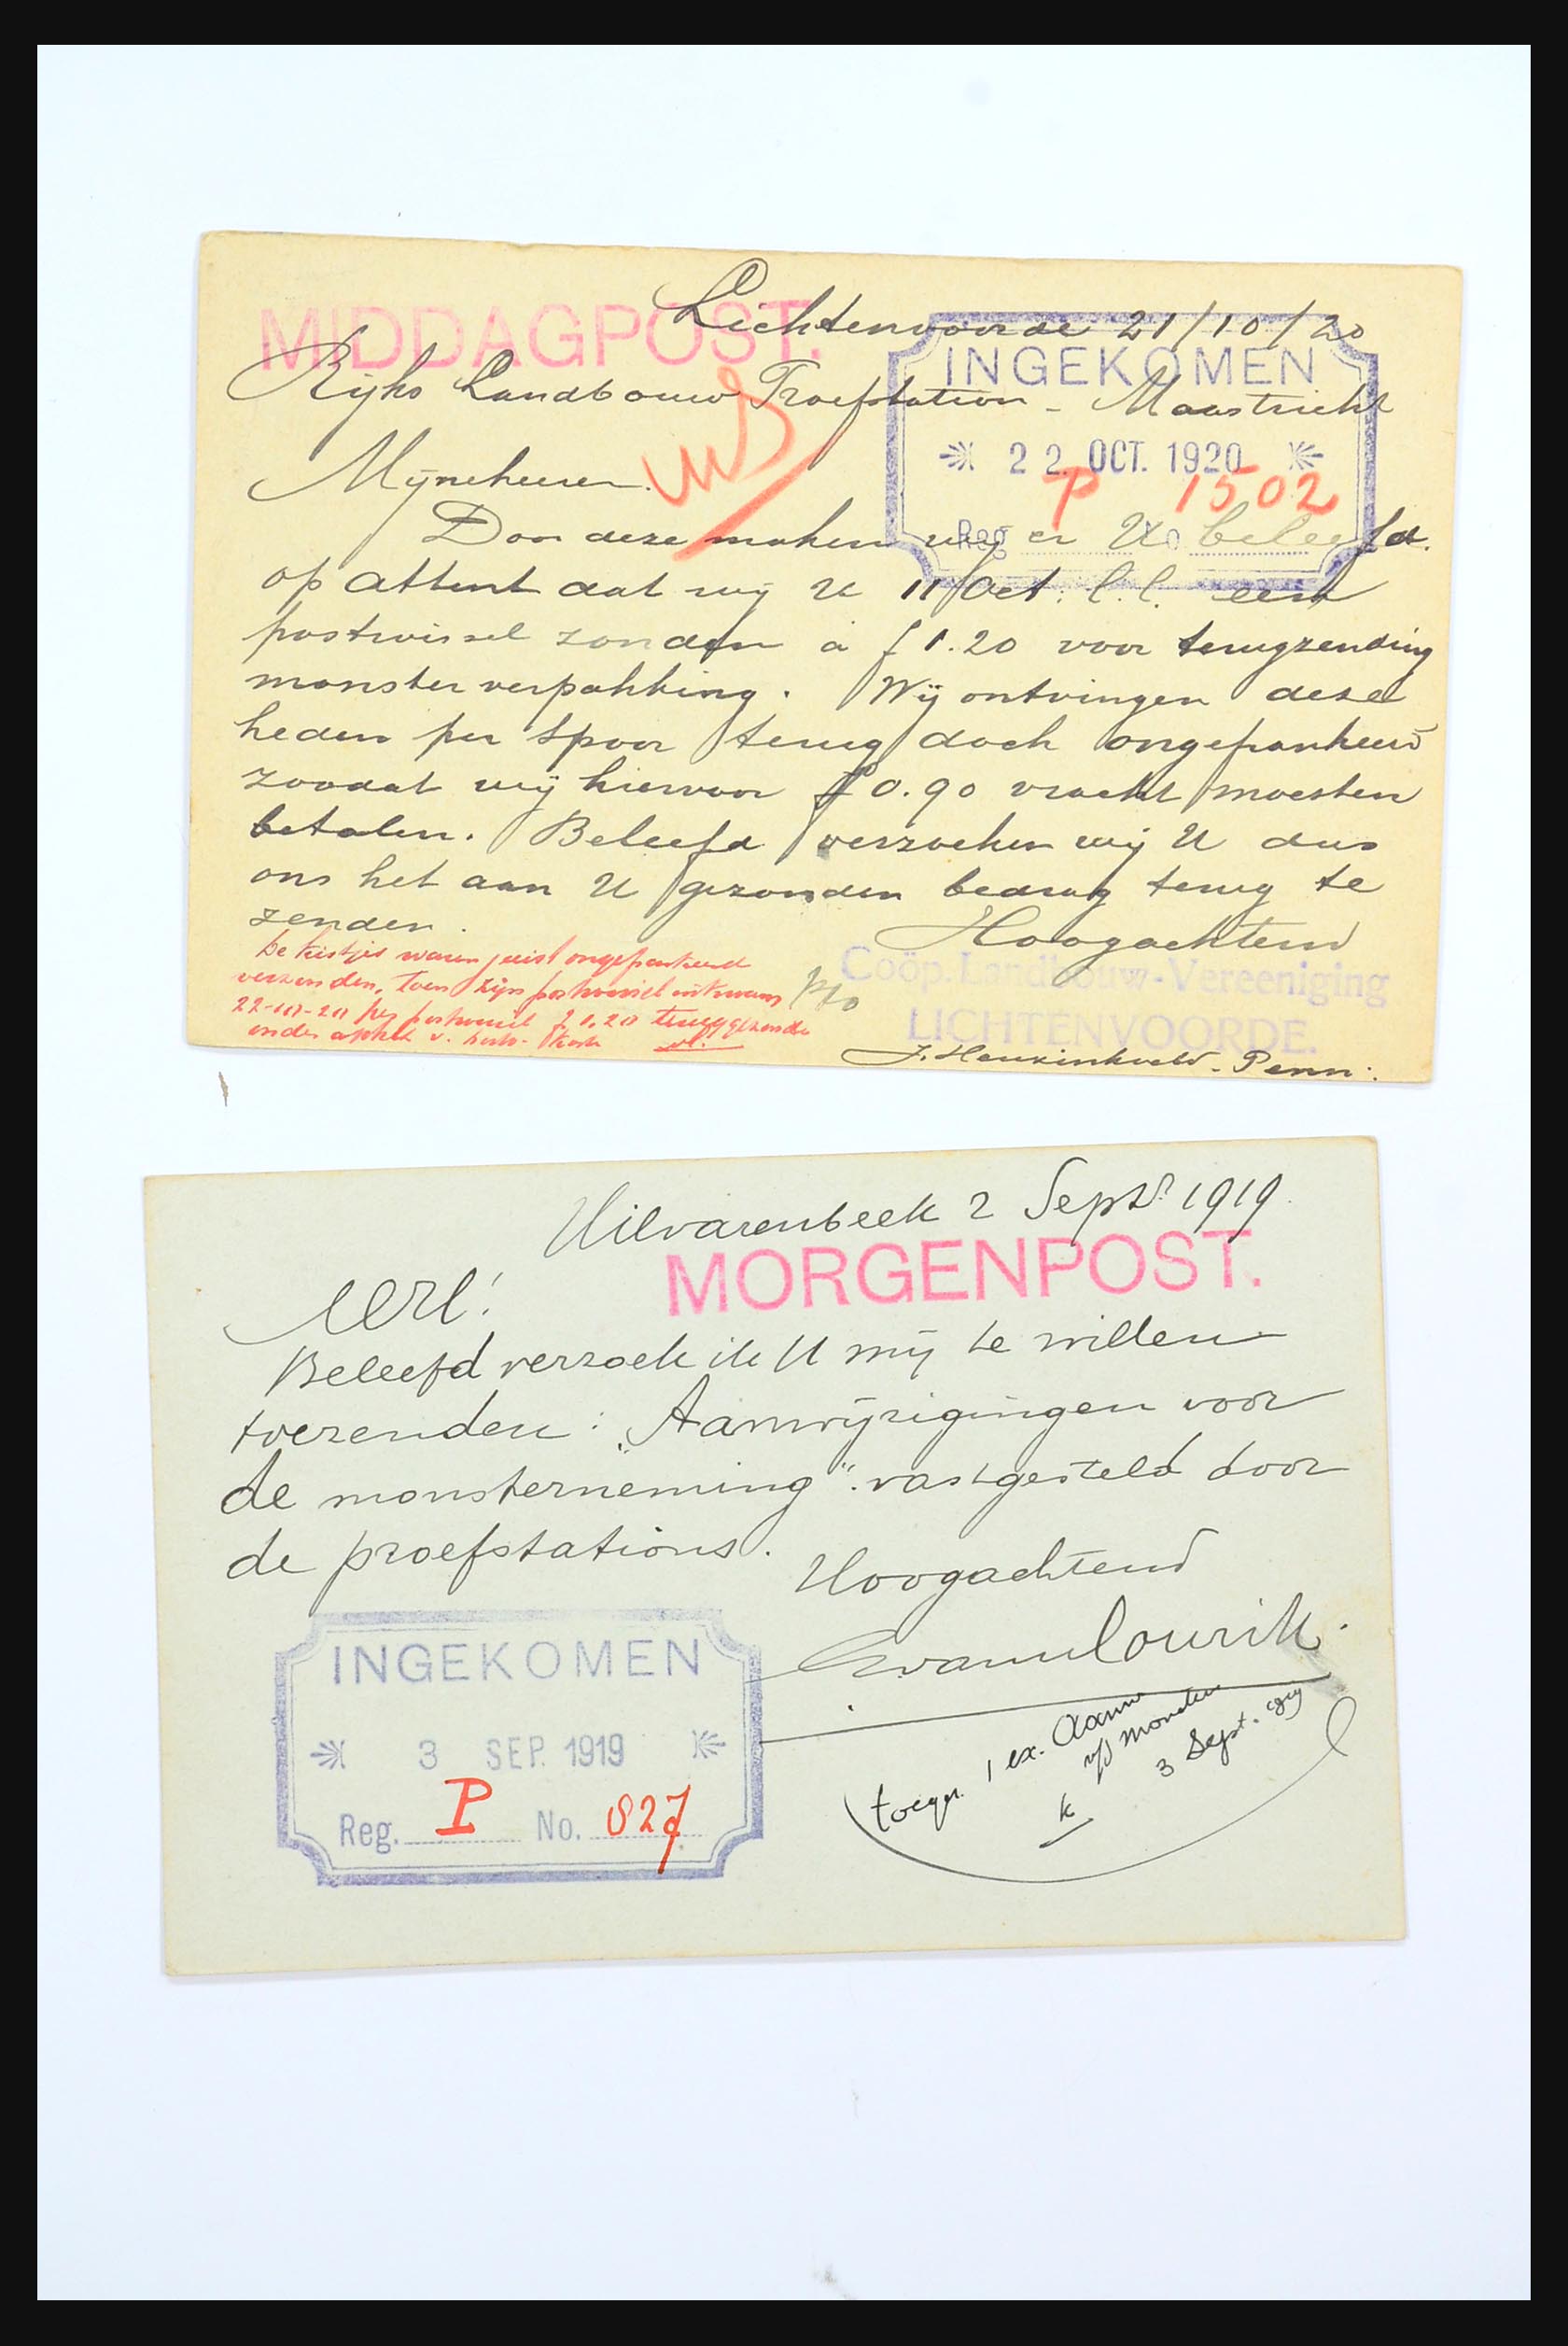 MIDDAGPOST.
Lichtenvoorde 21/10/20
Rijks Landbouw Proefstation - Maastricht
INGEKOMEN
22 OCT. 1920
P 1502
Reg No
Mijneheeren.
Door deze maken wij er U beleefd
op attent dat wij U 11 Oct: l.l. een
postwissel zonden à f 1.20 voor terugzending
monsterverpakking. Wij ontvingen deze
heden per spoor terug doch ongefrankeerd
zoodat wij hiervoor f 0.90 vracht moesten
betalen. Beleefd verzoeken wij U dus
ons het aan U gezonden bedrag terug te
zenden.
Hoogachtend
De kistjes waren juist ongefrankeerd
verzonden, toen zijn postwissel inkwam
22-10-20 per postwissel f 1.20 teruggezonden
onder aftrek v.
Coöp. Landbouw-Vereeniging
LICHTENVOORDE.
Penn:
Hilvarenbeek 2 Septr 1919.
MORGENPOST.
Beleefd verzoek ik U mij te willen
toezenden: „Aanwijzigingen voor
de monsterneming" vastgesteld door
de proefstations.
Hoogachtend
INGEKOMEN
3 SEP. 1919
Reg. P No. 827
toegez. 1 ex. Aanw
v/d monstern
3 Sept. 1919
k